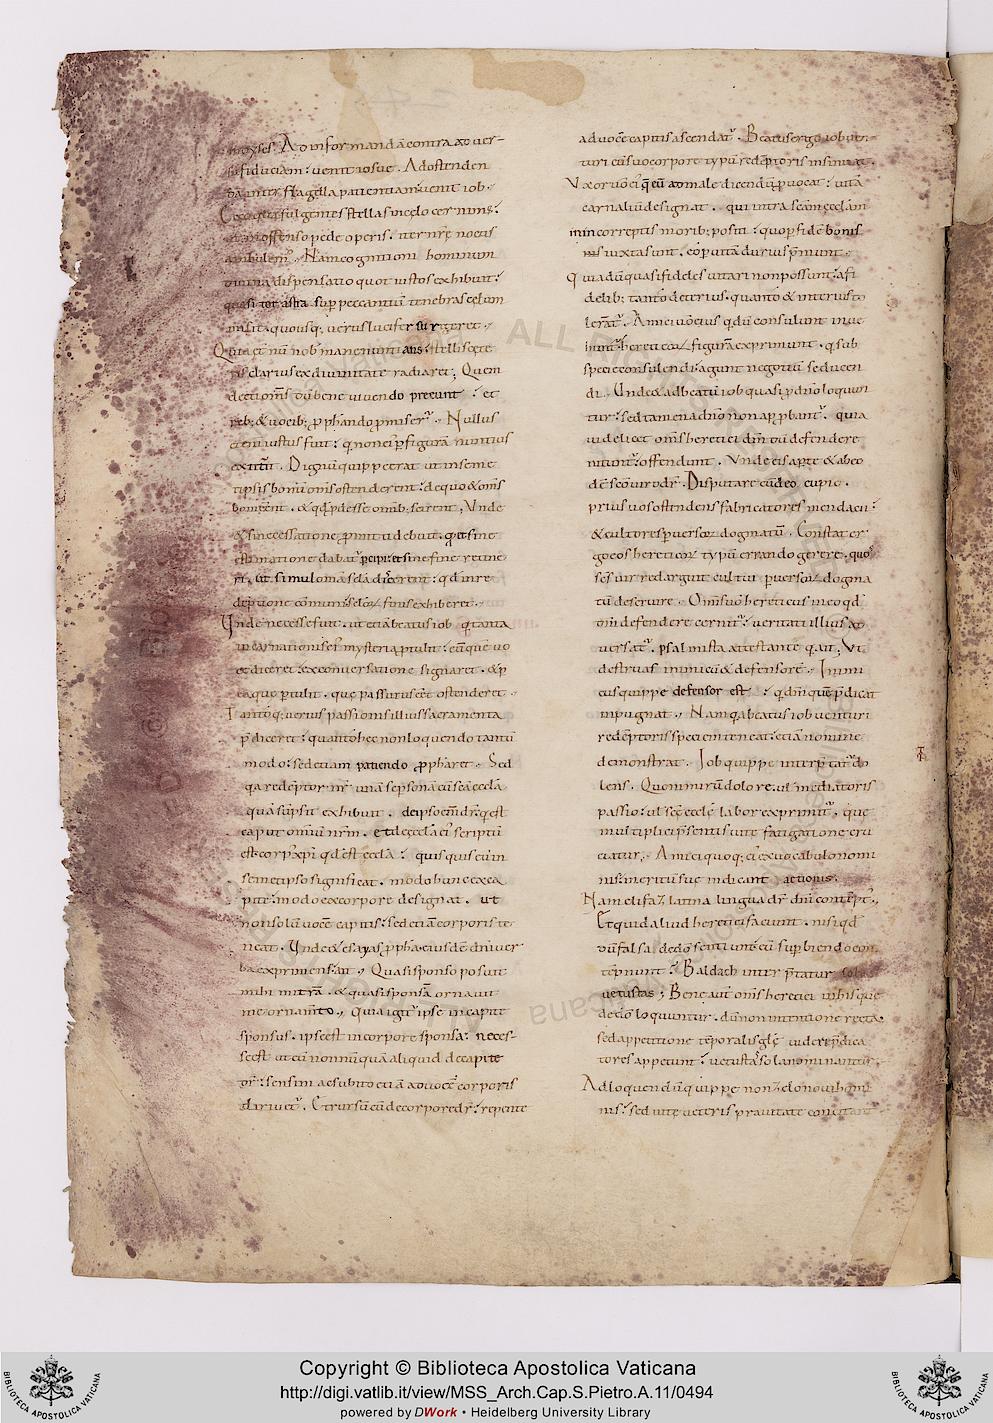 moyses. Ad informandā contra aduer-
sa fiduciam: uenit iosue. Ad ostenden
dā inter flagella patientiam: uenit iob.
Ecce quā fulgentes stellas in celo cernim;
inoffenso pede operis. iter nrē noctis
ambulem;. Nam cognitioni hominum
diuina dispensatio quot iustos exhibuit:
quasi tot astra sup peccantiū tenebras celum
misit. quousq; uerus lucifer surgeret.
Qui etnū nob mane nuntians: stellis cęte
ris clarius ex diuinitate radiaret; Quem
electi om̄s dū bene uiuendo preeunt: et
reb; & uocib; pphando pmiser̄. Nullus
etenī iustus fuit: q non ei; p figurā nuntius
extitit. Dignū quippe erat ut in seme
tipsis bonū om̄s ostenderent: de quo & om̄s
boni eent. & qd pdesse omib; scirent; Unde
& sine cessatione pmitti debuit. q et sine
estimatione dabat̄ percipi. et sine fine retine
ri. ut simul om̄a scla dicerent: qd in re
deptione cōmuni sclox finis exhiberet.
Unde necesse fuit. ut etiā beatus iob q tanta
incarnationis ei; mysteria ptulit: eū que uo
ce diceret: ex conuersatione signaret. & p
ea que ptulit. que passurus eēt ostenderet.
Tantoq; uerius passionis illius sacramenta
p̄diceret: quanto hec non loquendo tantū
modo: sed etiam patiendo ppharet. Sed
qa redēptor nr̄ unā se psonā cū scā eccla
quā supsit exhibuit. de ipso eni dr̄: q est
caput omīū nrm. et de eccla ei; scriptū
est: corp; xpi qd est eccla: quisquis eum
in semetipso significat. modo hunc ex ca
pite: modo ex corpore designat. ut
non solū uocē capitis: sed etiā corporis te
neat. Unde & esayas ppha eiusdē dni uer
ba exprimens: ait; Quasi sponso posuit
mihi mitrā. & quasi sponsā ornauit
me ornam̄to; Quia igit̄ ipse in capite
sponsus. ipse est in corpore sponsa: neces-
se est ut cū nonnūquā aliquid de capite
dr̄: sensim ac subito etiā ad uocē corporis
deriuet̄. Et rursū cū de corpore dr̄: repente
ad uocē capitis ascendat̄. Beatus ergo iob uen
turi cū suo corpore typū redēptoris insinuat.
Uxor uō ei; q eū ad maledicendū puocat: uitā
carnaliū designat. qui intra scam ecclam
in incorreptis morib; positi: quo p fidē bonis
iuxta sunt. eo p uitā durius pmunt.
Quia dū quasi fideles uitari non possunt: a fi
delib; tanto deterius. quanto & interius to
lerat̄. Amici uō eius q dū consulunt inue
hunt̄: hereticox figurā exprimunt. q sub
specie consulendi: agunt negotiū seducen
di. Unde & ad beatū iob quasi p dno loquun
tur: sed tamen a dnō non approbant̄. quia
uidelicet om̄s heretici dm̄ dū defendere
nitunt̄: offendunt. Unde eis apte & ab eo
dē sco uiro dr̄. Disputare cū deo cupio.
prius uos ostendens fabricatores mendacii:
& cultores puersox dogmatū. Constat er
go eos hereticox typū errando gerere. quos
scs uir redarguit cultui puersox dogma
tū deseruire. Om̄s uō hereticus in eo qd
dm̄ defendere cernit̄: ueritati illius ad
uersat̄. psalmista attestante q ait; Ut
destruas inimicū & defensorē. Inimi
cus quippe defensor est: q dm̄ quē p̄dicat
inpugnat; Nam qa beatus iob uenturi
redēptoris speciem teneat: etiā nomine
demonstrat. Iob quippe interp̄tat̄ do
lens. Quo nimirū dolore: ul mediatoris
passio: ul scę ecclę labor exprimit̄. que
multiplici p̄sentis uitę fatigatione cru
ciatur;. Amici quoq; ei; ex uocabulo nomi
nis: meritū suę indicant actionis.
Nam elifaz latina lingua dr̄ dm̄i contēpt;.
Et quid aliud heretici faciunt. nisi qd
dū falsa de dō sentiunt: eū supbiendo con
tēpnunt: Baldach interp̄tatur sola
uetustas; Bene aut om̄s heretici in his que
de dō loquuntur. dū non intentione recta
sed appetitione tēporalis glę uideri p̄dica
tores appetunt: uetusta sola nominantur.
Ad loquendū quippe non zelo noui homi
nis: sed uitę ueteris prauitate concitant̄
Copyright © Biblioteca Apostolica Vaticana
http://digi.vatlib.it/view/MSS_Arch.Cap.S.Pietro.A.11/0494
powered by DWork • Heidelberg University Library
BIBLIOTECA APOSTOLICA VATICANA
BIBLIOTECA APOSTOLICA VATICANA